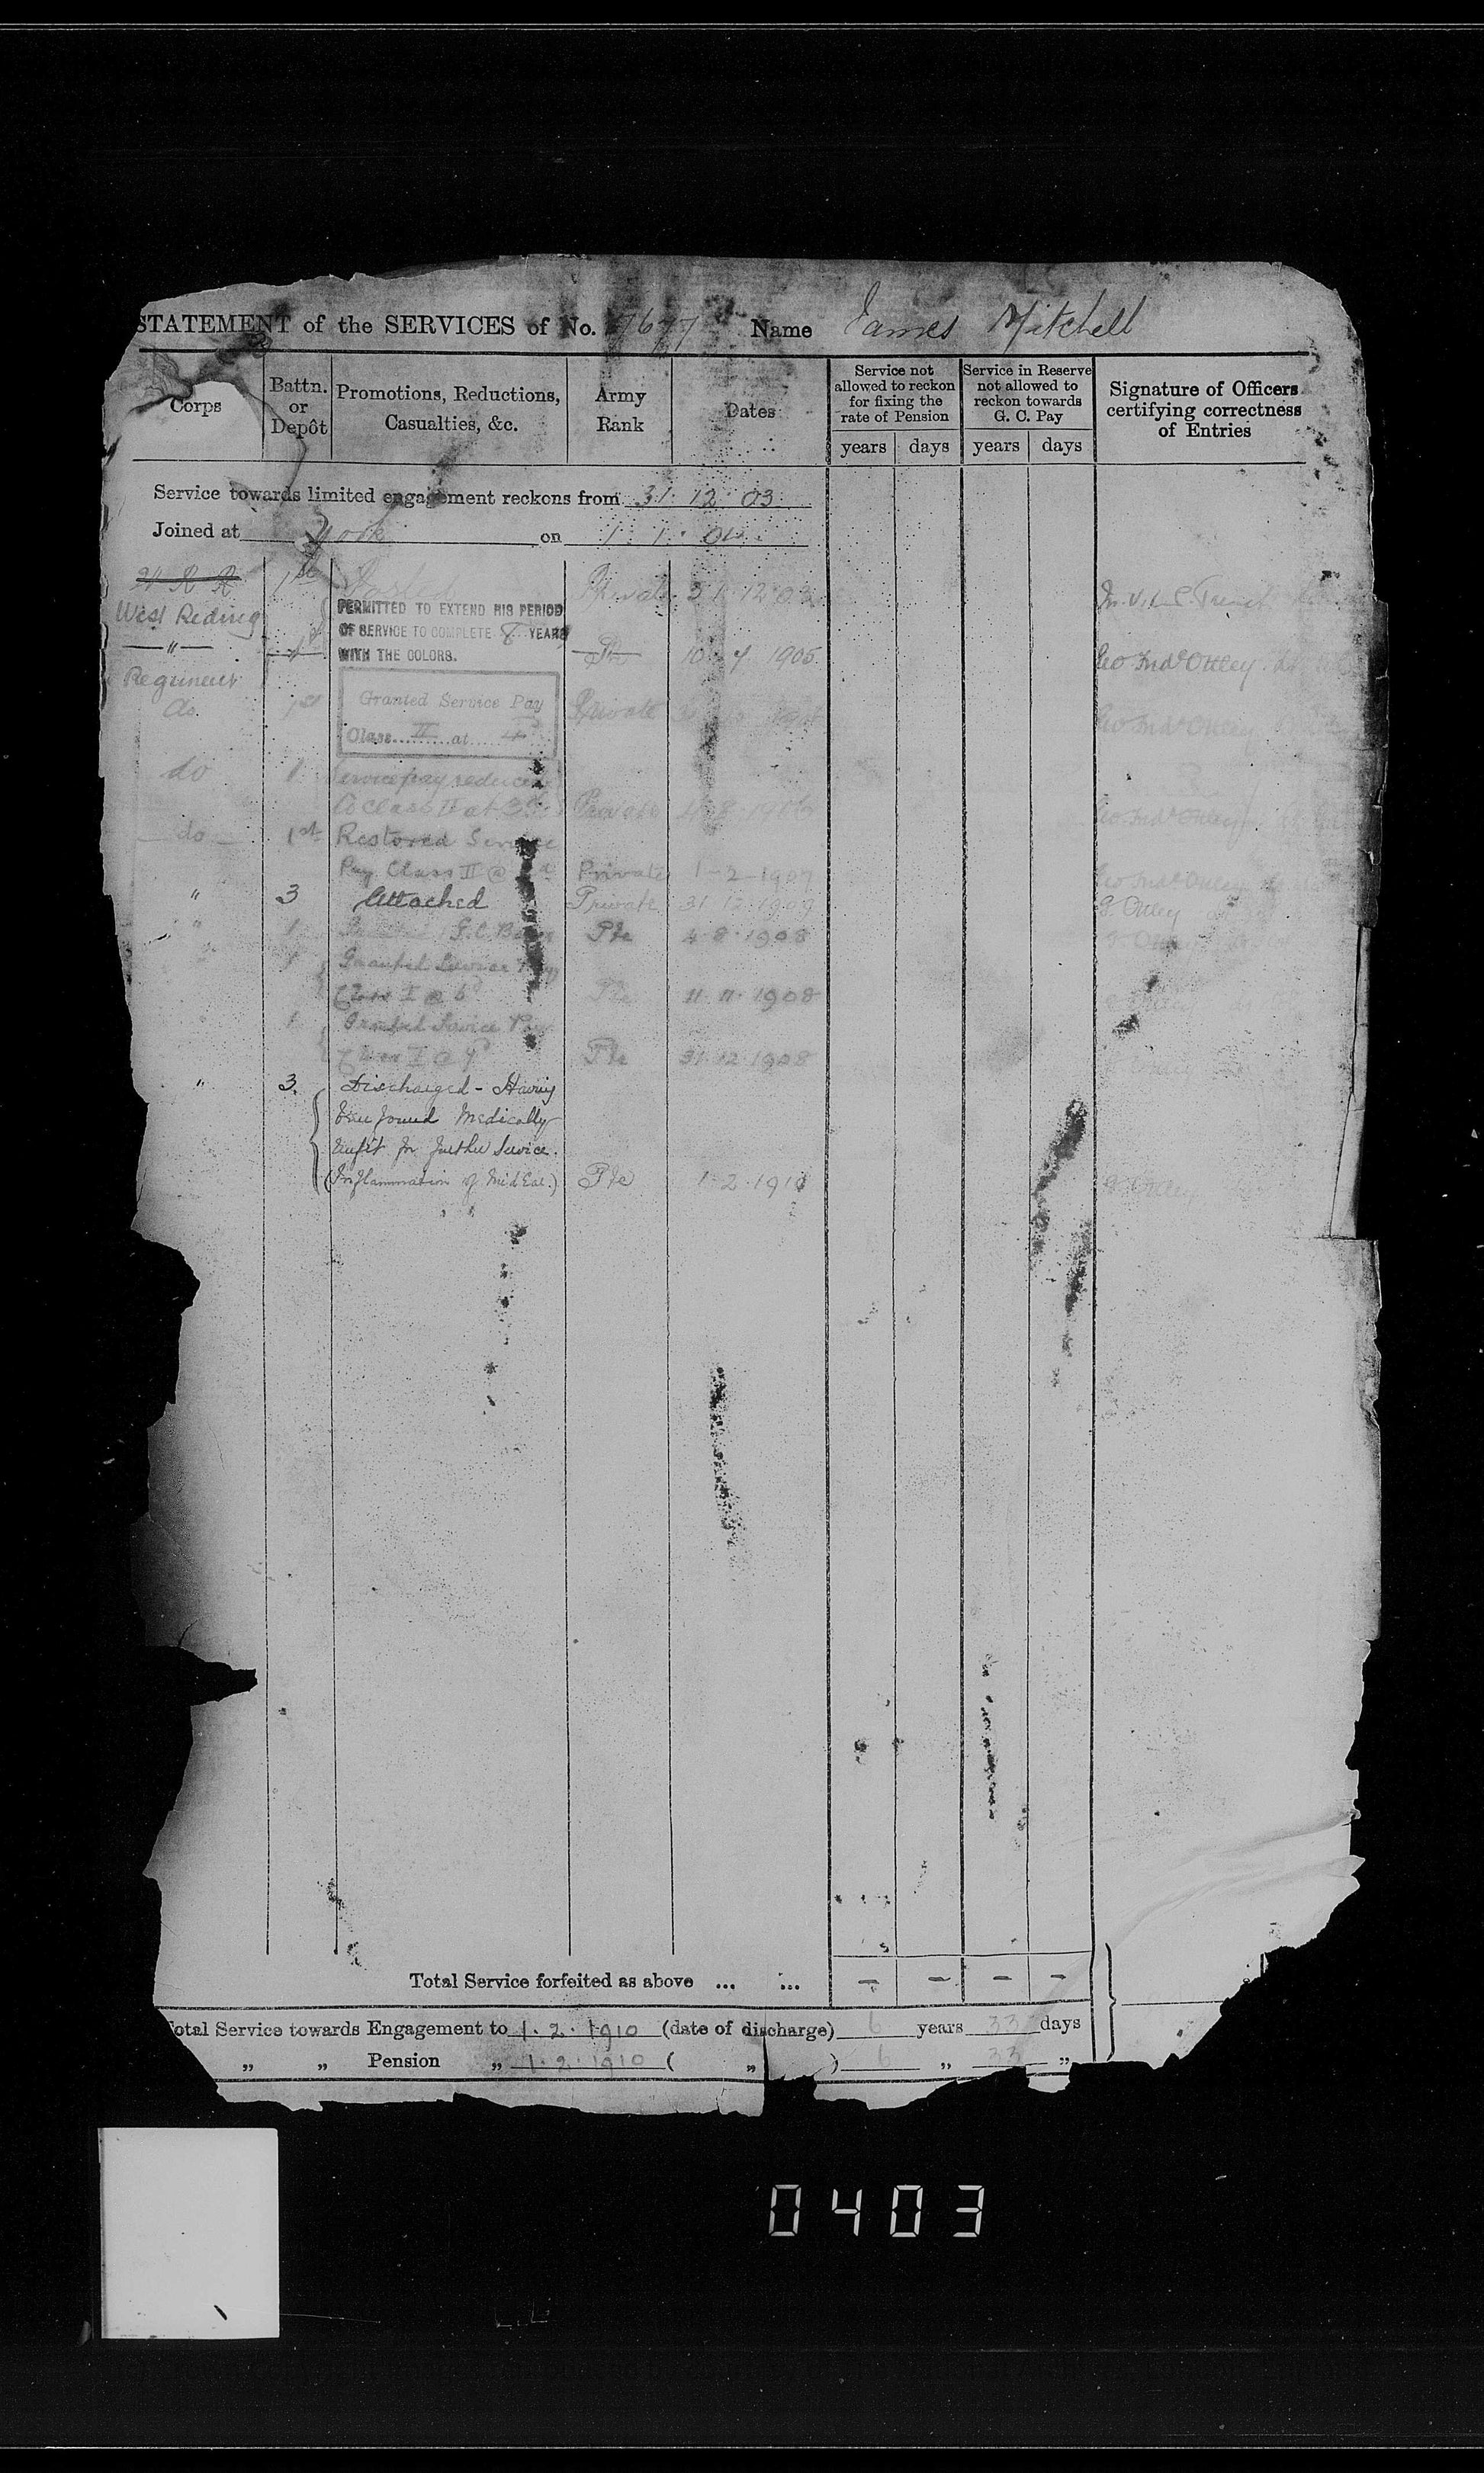 STATEMENT of the SERVICES of No. 7677 Name James Mitchell
Corps
Battn. or Depôt
Promotions, Reductions, Casualties, &c.
Army Rank
Dates
Service not allowed to reckon for fixing the rate of Pension
years days
Service in Reserve not allowed to reckon towards G. C. Pay
years days
Signature of Officers certifying correctness of Entries
Service towards limited engagement reckons from 31. 12. 03
Joined at York on 1. 1. 04
W R R 1st Posted Private 31.12.03
West Reding
PERMITTED TO EXTEND HIS PERIOD
OF SERVICE TO COMPLETE 8 YEARS
WITH THE COLORS.
—"— 1st Pte 10 7 1905 Geo Fredk Ottley
Regiment
do. 1st Granted Service Pay Private Geo Fredk Ottley
Class II at 4d
do 1 Service pay reduced
to Class II at 3d Private 4.8.1906 Geo Fredk Ottley
do 1st Restored Service
Pay Class II @ Private 1-2-1907 Geo Fredk Ottley
" 3 Attached Private 31.12.1909 G. Ottley
" 1 G.C. Pte 4.8.1908 G. Ottley
" 1 Granted Service Pay
Class I @ 6d Pte 11.11.1908
1 Granted Service Pay
Class I @ Pte 31.12.1908
" 3. Discharged - Having
been found Medically
unfit for further Service.
(Inflammation of Mid Ear.) Pte 1.2.1910 G. Ottley
Total Service forfeited as above ... ... — — — —
Total Service towards Engagement to 1. 2. 1910 (date of discharge) 6 years 33 days
„ „ Pension „ 1. 2. 1910 ( „ ) 6 „ 33 „
0403